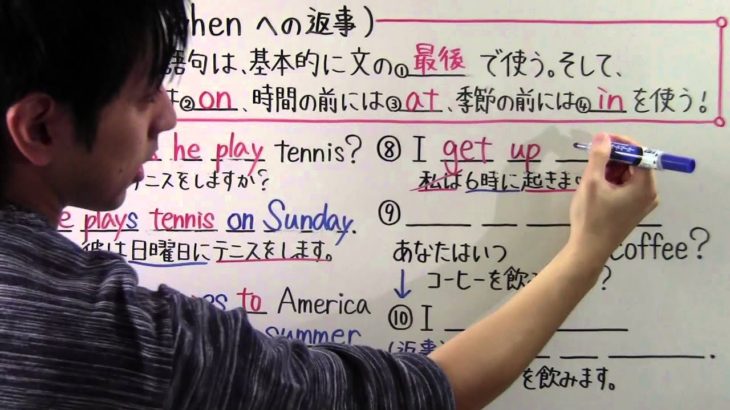 when への返事)
語句は、基本的に文の①最後で使う。そして、
は②on、時間の前には③at、季節の前には④inを使う!
he play tennis?
テニスをしますか?
plays tennis on Sunday.
彼は日曜日にテニスをします。
to America
summer
⑧ I get up
私は6時に起きま
⑨
coffee?
あなたはいつ
コーヒーを飲
?
⑩ I
(返事
を飲みます。